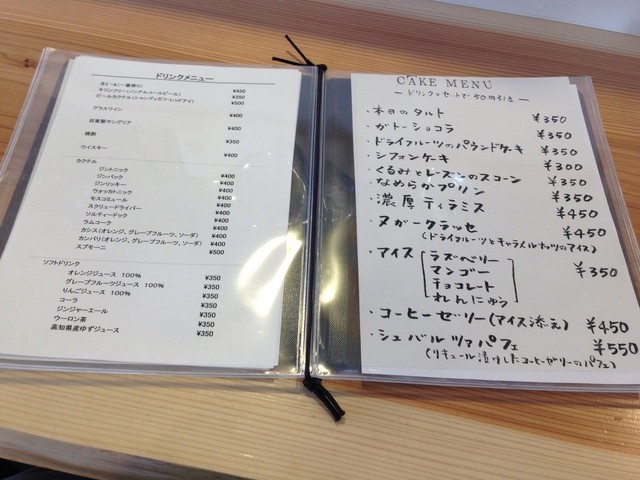 ドリンクメニュー
生ビール(一番搾り) ¥450
キリンフリー(ノンアルコールビール) ¥350
ビールカクテル(シャンディガフ・レッドアイ) ¥500
グラスワイン ¥400
自家製サングリア ¥400
焼酎 ¥350
ウイスキー ¥400
カクテル
ジントニック ¥400
ジンバック ¥400
ジンリッキー ¥400
ウォッカトニック ¥400
モスコミュール ¥400
スクリュードライバー ¥400
ソルティードック ¥400
ラムコーク ¥400
カシス(オレンジ、グレープフルーツ、ソーダ) ¥400
カンパリ(オレンジ、グレープフルーツ、ソーダ) ¥400
スプモーニ ¥500
ソフトドリンク
オレンジジュース 100% ¥350
グレープフルーツジュース 100% ¥350
りんごジュース 100% ¥350
コーラ ¥350
ジンジャーエール ¥350
ウーロン茶 ¥350
高知県産ゆずジュース ¥350
CAKE MENU
ードリンクとセットで50円引きー
・本日のタルト ¥350
・ガトーショコラ ¥350
・ドライフルーツのパウンドケーキ ¥350
・シフォンケーキ ¥300
・くるみとレーズンのスコーン ¥350
・なめらかプリン ¥350
・濃厚ティラミス ¥450
・ヌガークラッセ ¥450
(ドライフルーツとキャラメルナッツのアイス)
・アイス ラズベリー
マンゴー ¥350
チョコレート
れんにゅう
・コーヒーゼリー(アイス添え) ¥450
・シュバルツァパフェ ¥550
(リキュール漬けしたコーヒーゼリーのパフェ)